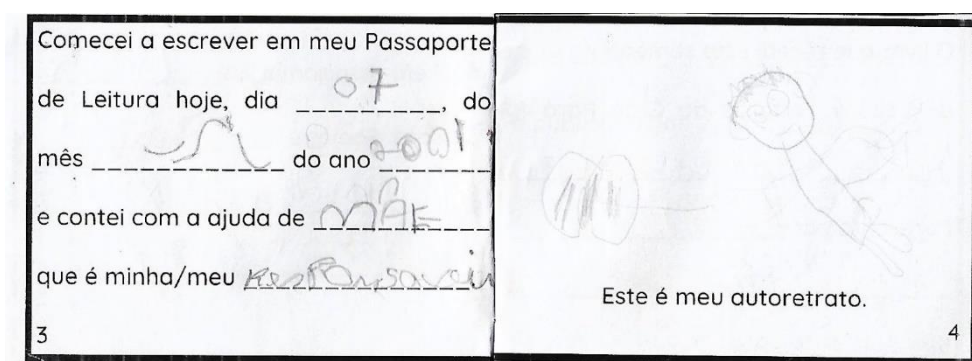 Comecei a escrever em meu Passaporte
de Leitura hoje, dia 07, do
mês do ano
e contei com a ajuda de MÃE
que é minha/meu
3
Este é meu autoretrato.
4